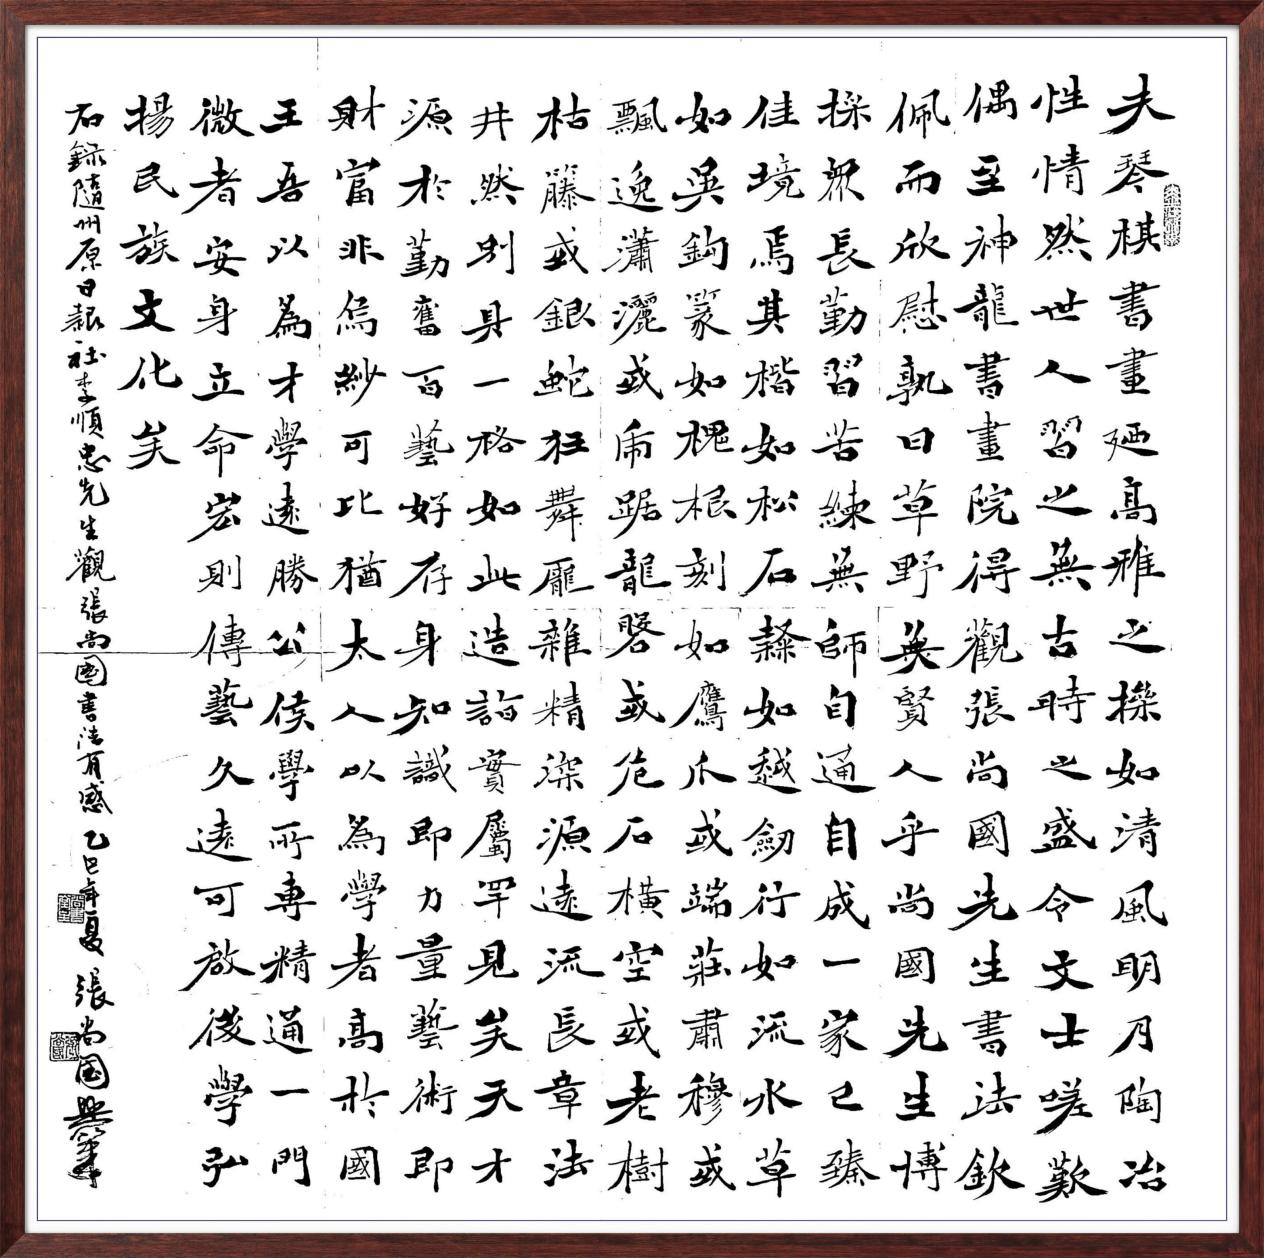 夫琴棋書畫迺高雅之操如清風明月陶冶
性情然世人習之無古時之盛令文士嗟歎
偶至神龍書畫院得觀張尚國先生書法欽
佩而欣慰孰曰草野無賢人乎尚國先生博
採眾長勤習苦練無師自通自成一家已臻
佳境焉其楷如松石隸如越劍行如流水草
如吳鉤篆如槐根刻如鷹爪或端莊肅穆或
飄逸瀟灑或虎踞龍磐或危石橫空或老樹
枯籐或銀蛇狂舞龐雜精深源遠流長章法
井然別具一格如此造詣實屬罕見矣天才
源於勤奮百藝好存身知識即力量藝術即
財富非烏紗可比猶太人以為學者高於國
王吾以為才學遠勝公侯學所專精通一門
微者安身立命宏則傳藝久遠可啟後學弘
揚民族文化矣
右録隨州原日報社李順忠先生觀張尚國書法有感 乙巳年夏 張尚國